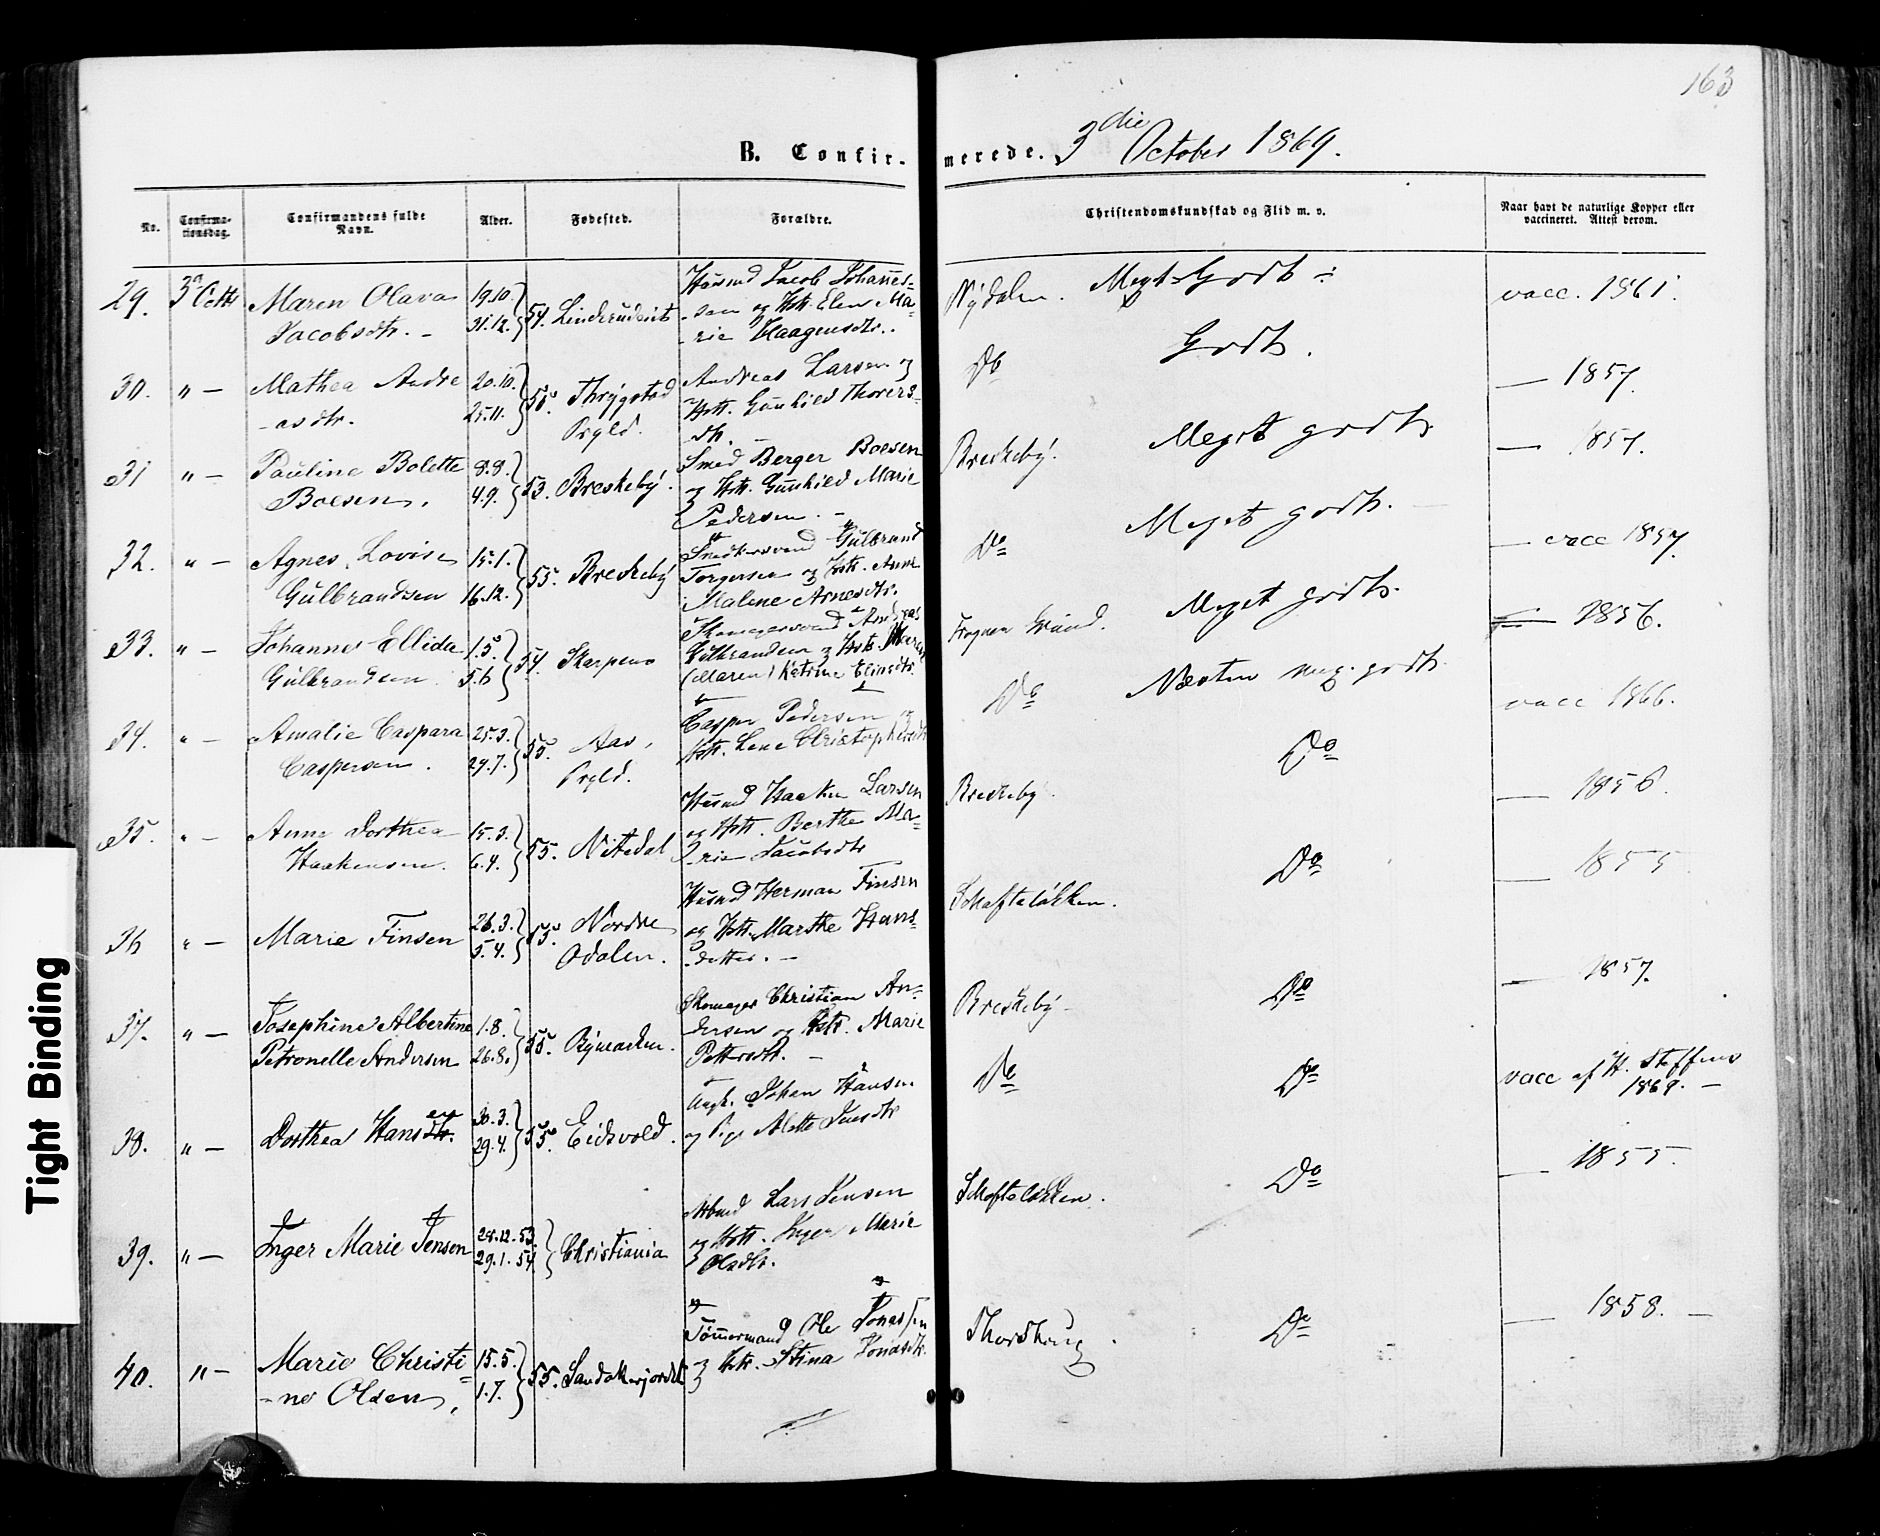 163
B. Confirmerede. 3die October 1869.
No. Confirmationsdag. Confirmandens fulde Navn. Alder. Fødested. Forældre. Christendomskundskab og Flid m. v. Naar havt de naturlige Kopper eller vaccineret. Attest derom.
29. 3 Octb Maren Olava 19.10. 31.12. 54. Linderud
Jacobsdtr. –
Husmd Jacob Johannes-
-sen og Hstr. Elen Ma-
-rie Haagensdtr.
Nydalen. Meget Godt vacc. 1861.
30. " – Mathea Andre 20.10. 25.11. 55.
-asdtr.
Prgld.
Andreas Larsen og
Hstr. Gunhild Thorers-
dtr. –
Do Godt. — 1857.
31 " – Pauline Bolette 8.8. 4.9. 53. Breskeby.
Boesen.
Smed Berger Boesen
og Hstr. Gunhild Marie
Pedersen. –
Breskeby. Meget godt. — 1857.
32. " – Agnes Lovise 15.1. 16.12. 55. Breskeby
Gulbrandsen
Snedkersvend Gulbrand
Torgersen og Hstr. Anne
Malene Arnesdtr.
Do Meget godt. — vacc 1857.
33. " – Johannes Ellida 1.5. 5.6 54. Skarpeno
Gulbrandsen
Skomagersvend Andreas
Gulbrandsen og Hstr.
(Maren) Katrine Eliasdtr.
Frogner Grund. Meget godt. — 1856.
34. " – Amalie Caspara 25.3. 29.7. 55. Aas,
Caspersen.
Prgld.
Casper Pedersen og
Hstr. Lene Christophersdtr
Do Næsten meg. godt. vacc 1866.
35. " – Anne Dorthea 15.3. 6.4. 55. Nitedal
Haakensen.
Husmd Haaken Larsen
og Hstr. Berthe Ma-
-rie Jacobsdtr
Breskeby. Do — 1856.
36 " – Marie Finsen 26.3. 5.4. 55. Nordre
Odalen.
Husmd Herman Finsen
og Hstr. Marthe Hans-
-datter. –
Schafteløkken. Do — 1855
37. " – Josephine Albertine 1.8. 26.8. 55. Bymarken.
Petronelle Andersen
Skomager Christian An-
dersen og Hstr. Marie
Pettersdtr. –
Breskeby Do — 1857.
38. " – Dorthea Hansdtr. en 30.3. 29.4. 55. Eidsvold.
Ungk. Johan Hansen
og Pige Alette Jensdtr
Do Do vacc af H. Steffens
1869. –
39. " – Inger Marie Jensen 28.12.53. 29.1.54. Christiania
Arbmd Lars Jensen
og Hstr. Inger Marie
Olsdtr.
Schafteløkken. Do — 1855.
40. " – Marie Christi= 15.5. 1.7. 55. Sandakerjordet
-ne Olsen,
Tømmermand Ole Jonassen
og Hstr. Stina Jonasdtr.
Thorshaug Do — 1858. –
Tight Binding